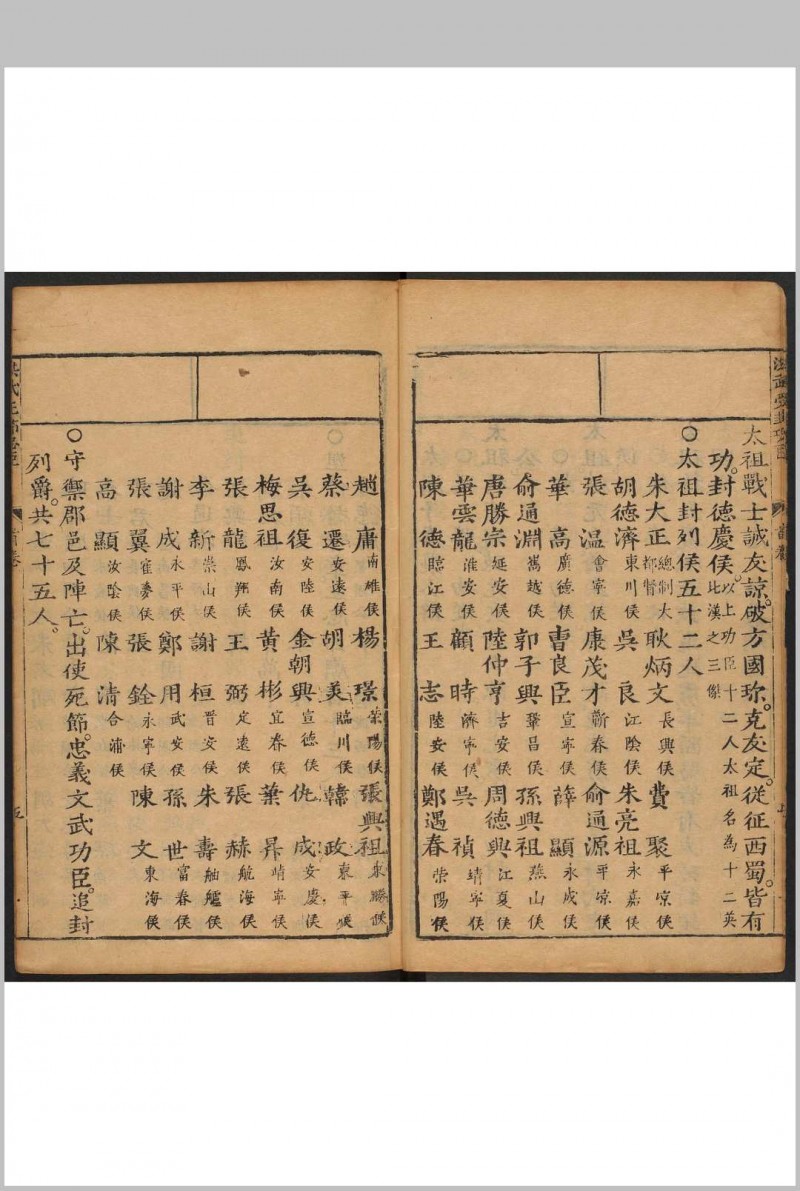 太祖戰士誠友諒破方國珍克友定從征西蜀皆有
功封德慶侯以上功臣十二人太祖名為十二英比漢之三傑
○太祖封列侯五十二人
朱大正總制大都督 耿炳文長興侯 費聚平凉侯
胡德濟東川侯 吳良江陰侯 朱亮祖永嘉侯
張溫會寧侯 康茂才蘄春侯 俞通源平凉侯
華高廣德侯 曹良臣宣寧侯 薛顯永成侯
俞通淵嶲越侯 郭子興鞏昌侯 孫興祖燕山侯
唐勝宗延安侯 陸仲亨吉安侯 周德興江夏侯
華雲龍淮安侯 顧時濟寧侯 吳禎靖寧侯
陳德臨江侯 王志陸安侯 鄭遇春荣陽侯
趙庸南雄侯 楊璟荣陽侯 張興祖東勝侯
蔡遷安遠侯 胡美臨川侯 韓政東平侯
吳復安陸侯 金朝興宣德侯 仇成安慶侯
梅思祖汝南侯 黄彬宜春侯 葉昇崝寧侯
張龍鳳翔侯 王弼定遠侯 張赫航海侯
李新崇山侯 謝桓晋安侯 朱壽舳艫侯
謝成永平侯 鄭用武安侯 孫世富春侯
張翼崔夢侯 張銓永寧侯 陳文東海侯
高顯汝陰侯 陳清合浦侯
○守禦郡邑及陣亡出使死節忠義文武功臣追封
列爵共七十五人